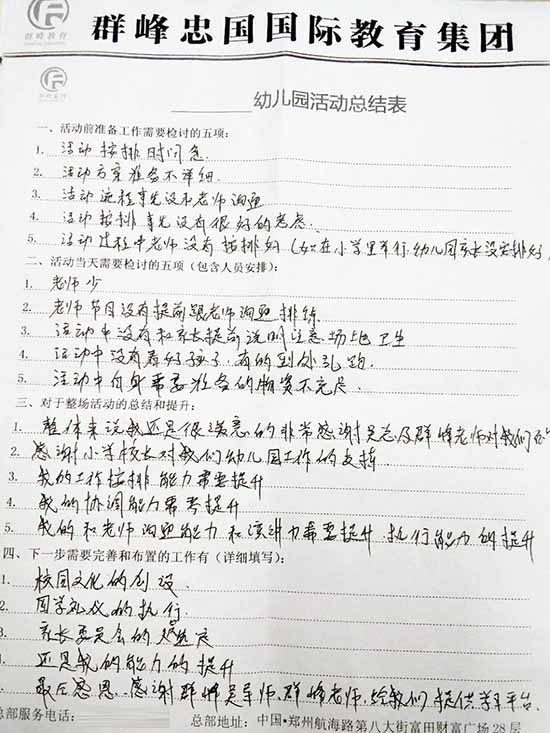 群峰教育
群峰忠国国际教育集团
群峰教育
幼儿园活动总结表
一、活动前准备工作需要检讨的五项:
1. 活动按排时间急.
2. 活动方案准备不详细.
3. 活动流程事先没和老师沟通
4. 活动按排事先没有很好的考虑.
5. 活动过程中老师没有按排好(如:在小学里举行.幼儿园家长没安排好)
二、活动当天需要检讨的五项(包含人员安排):
1. 老师少
2. 老师节目没有提前跟老师沟通排练.
3. 活动中没有和家长提前说明注意场地卫生
4. 活动中没有看好孩子.有的到处乱跑.
5. 活动中自身需要准备的物资不充足.
三、对于整场活动的总结和提升:
1. 整体来说我还是很满意的非常感谢吴总及群峰老师对我们
2. 感谢小学校长对我们幼儿园工作的支持.
3. 我的工作按排能力需要提升
4. 我的协调能力需要提升
5. 我的和老师沟通能力和演讲力需要提升.执行能力的提升
四、下一步需要完善和布置的工作有(详细填写):
1. 校园文化的创设.
2. 国学礼仪的执行.
3. 家长委员会的
4. 还是我的能力的提升
最后感恩.感谢群峰吴导师.群峰老师.给我们提供学习平台.
总部服务电话:
总部地址:中国·郑州航海路第八大街富田财富广场28层